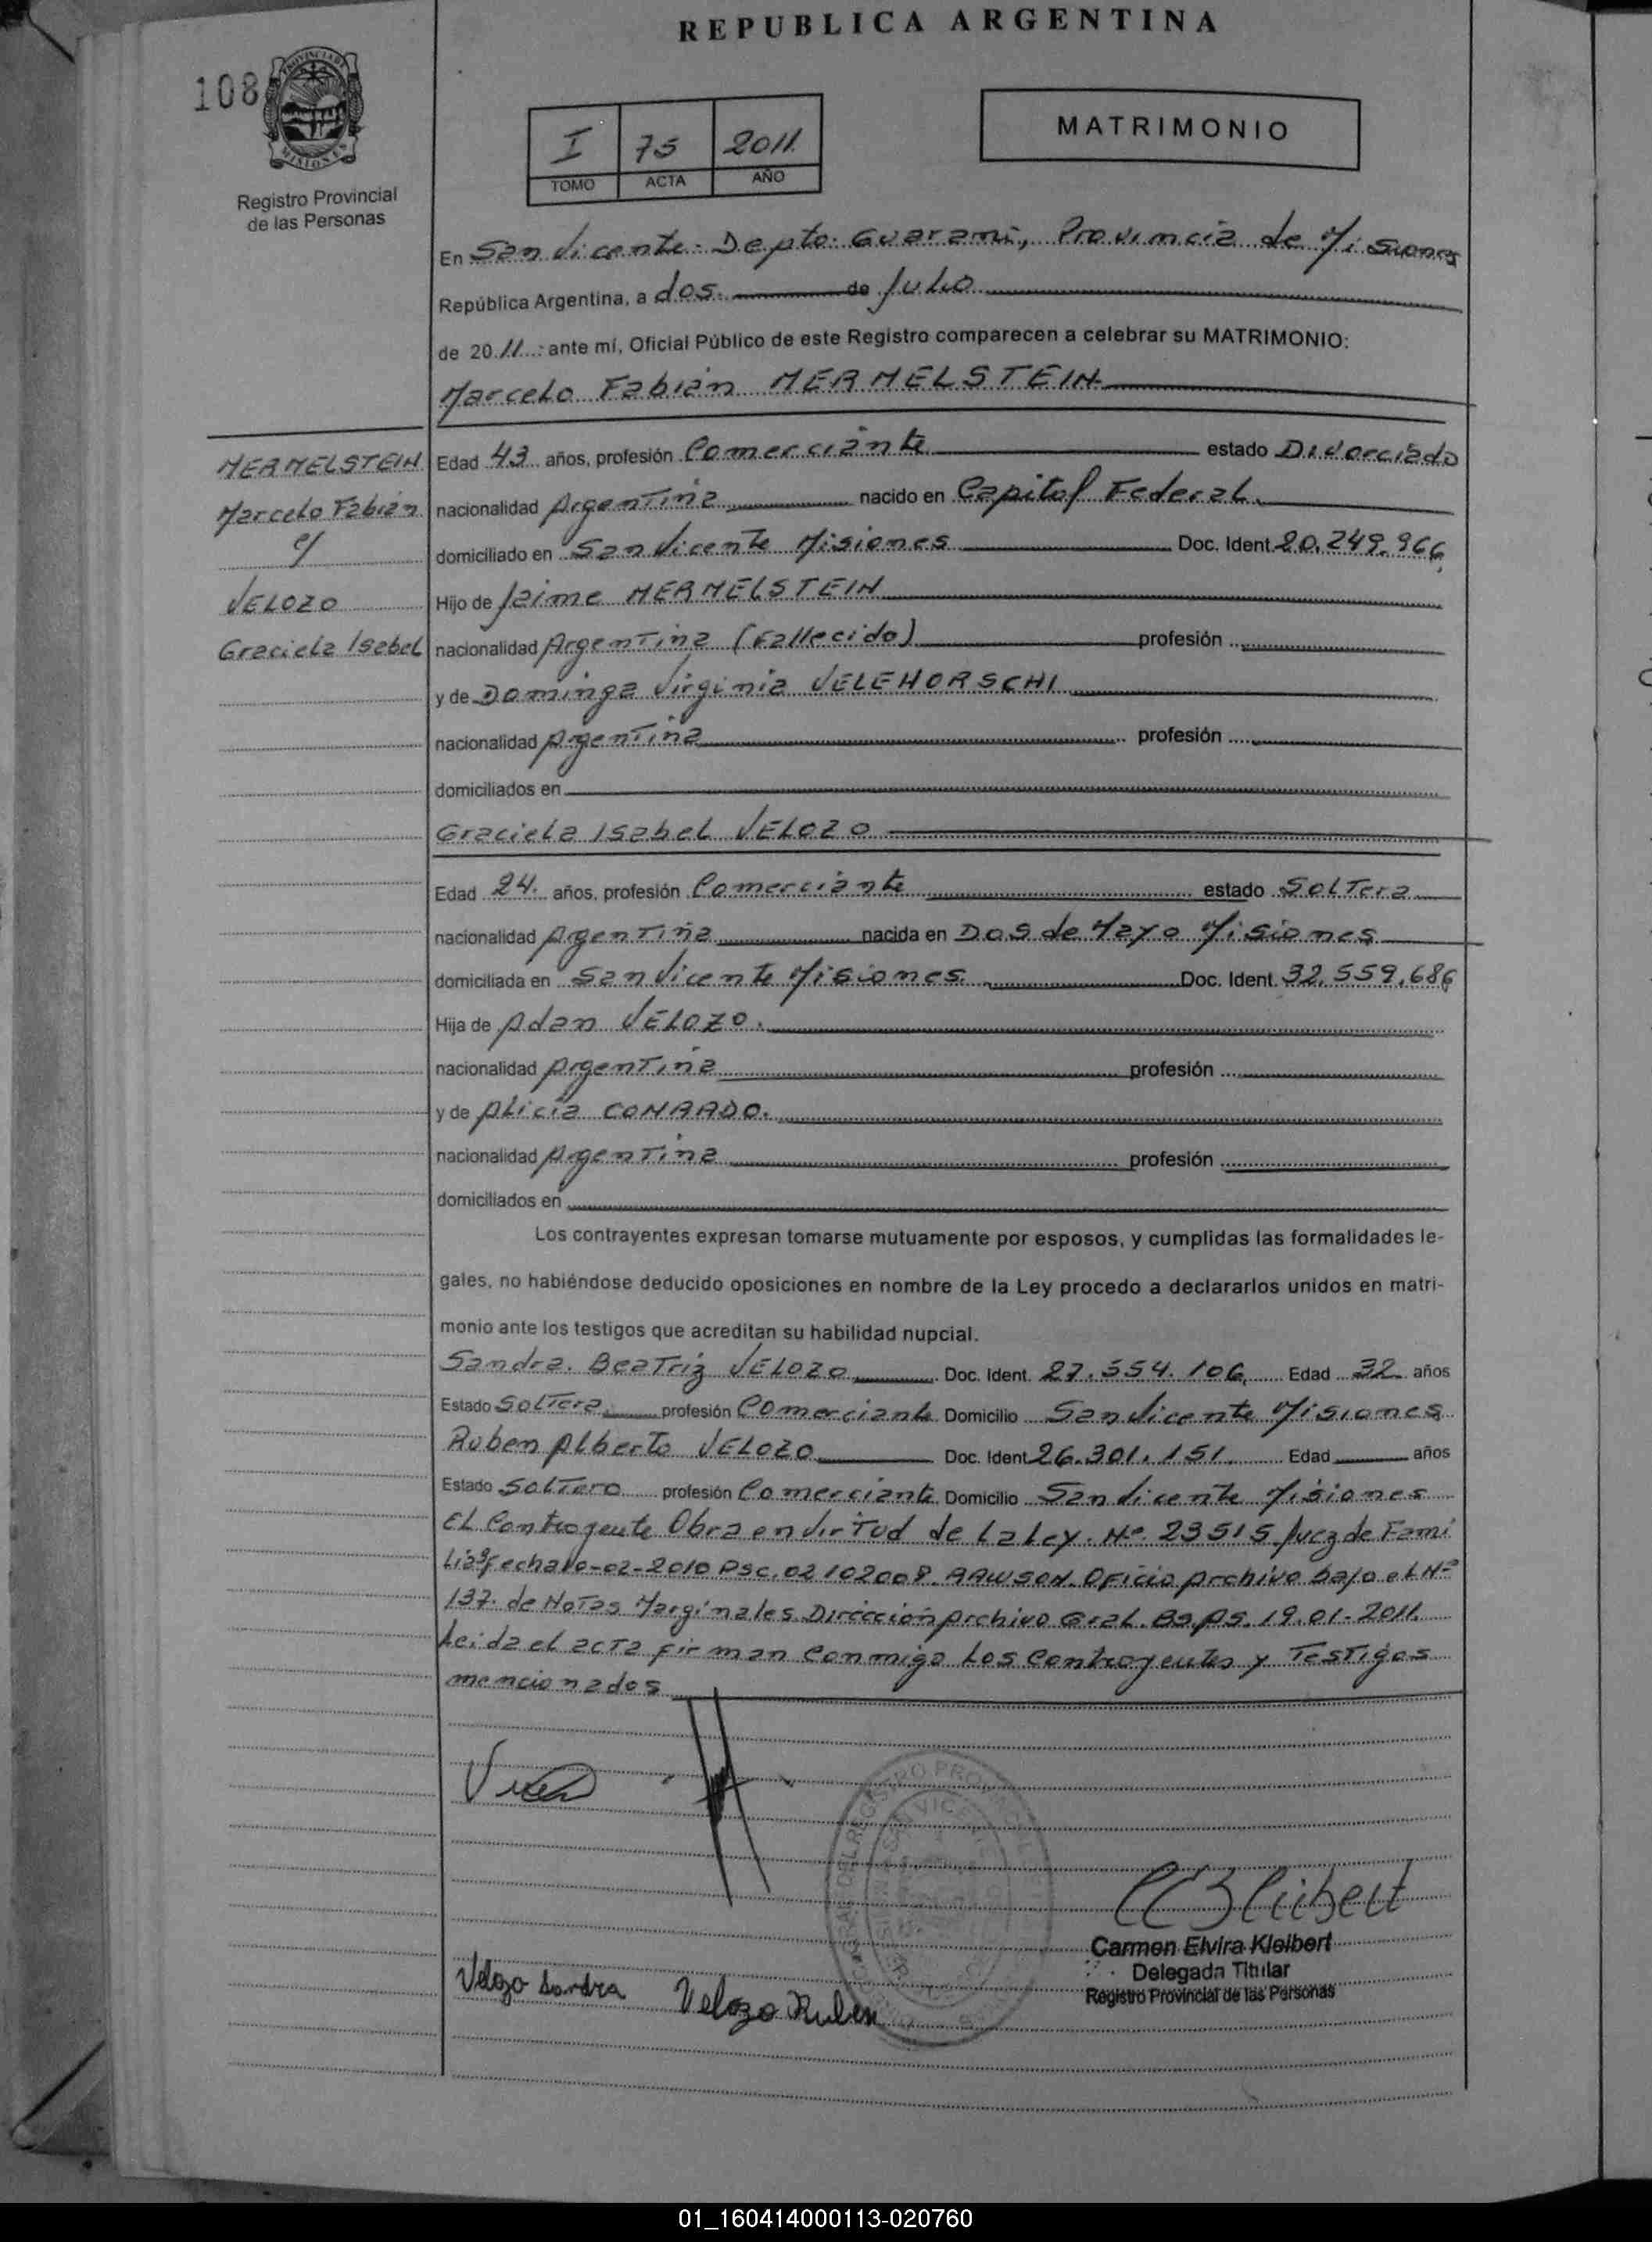 REPUBLICA ARGENTINA
108
PROVINCIA DE
MISIONES
Registro Provincial
de las Personas
I 75 2011
TOMO ACTA AÑO
MATRIMONIO
En San Vicente. Depto. Guarani, Provincia de Misiones
República Argentina, a dos. de Julio
de 2011 ante mí, Oficial Público de este Registro comparecen a celebrar su MATRIMONIO:
Marcelo Fabián MERMELSTEIN
MERMELSTEIN
Marcelo Fabián
c/
VELOZO
Graciela Isabel
Edad 43 años, profesión Comerciante estado Divorciado
nacionalidad Argentina nacido en Capital Federal.
domiciliado en San Vicente Misiones Doc. Ident. 20.249.966
Hijo de Jaime MERMELSTEIN
nacionalidad Argentina (Fallecido) profesión
y de Dominga Virginia VELEHORSCHI
nacionalidad Argentina profesión
domiciliados en
Graciela Isabel VELOZO
Edad 24. años, profesión Comerciante estado Soltera
nacionalidad Argentina nacida en Dos de Mayo Misiones
domiciliada en San Vicente Misiones. Doc. Ident. 32.559.686
Hija de Adan VELOZO.
nacionalidad Argentina profesión
y de Alicia CONRADO.
nacionalidad Argentina profesión
domiciliados en
Los contrayentes expresan tomarse mutuamente por esposos, y cumplidas las formalidades le-
gales, no habiéndose deducido oposiciones en nombre de la Ley procedo a declararlos unidos en matri-
monio ante los testigos que acreditan su habilidad nupcial.
Sandra. Beatriz VELOZO Doc. Ident. 27.554.106 Edad 32 años
Estado Soltera profesión Comerciante Domicilio San Vicente Misiones
Ruben Alberto VELOZO Doc. Ident. 26.301.151. Edad años
Estado Soltero profesión Comerciante Domicilio San Vicente Misiones
El Contrayente Obra en Virtud de la Ley. Nº 23515 Juez de Fami
lia fecha 10-02-2010 PSC. 02102008. RAWSON. Oficio Archivo bajo el Nº
137. de Notas Marginales Dirección Archivo Gral. Bs.As. 19.01-2011.
Leida el acta firman conmigo los Contrayentes y Testigos
mencionados
Carmen Elvira Kleibert
Delegada Titular
Registro Provincial de las Personas
Velozo Sandra Velozo Ruben
01_160414000113-020760